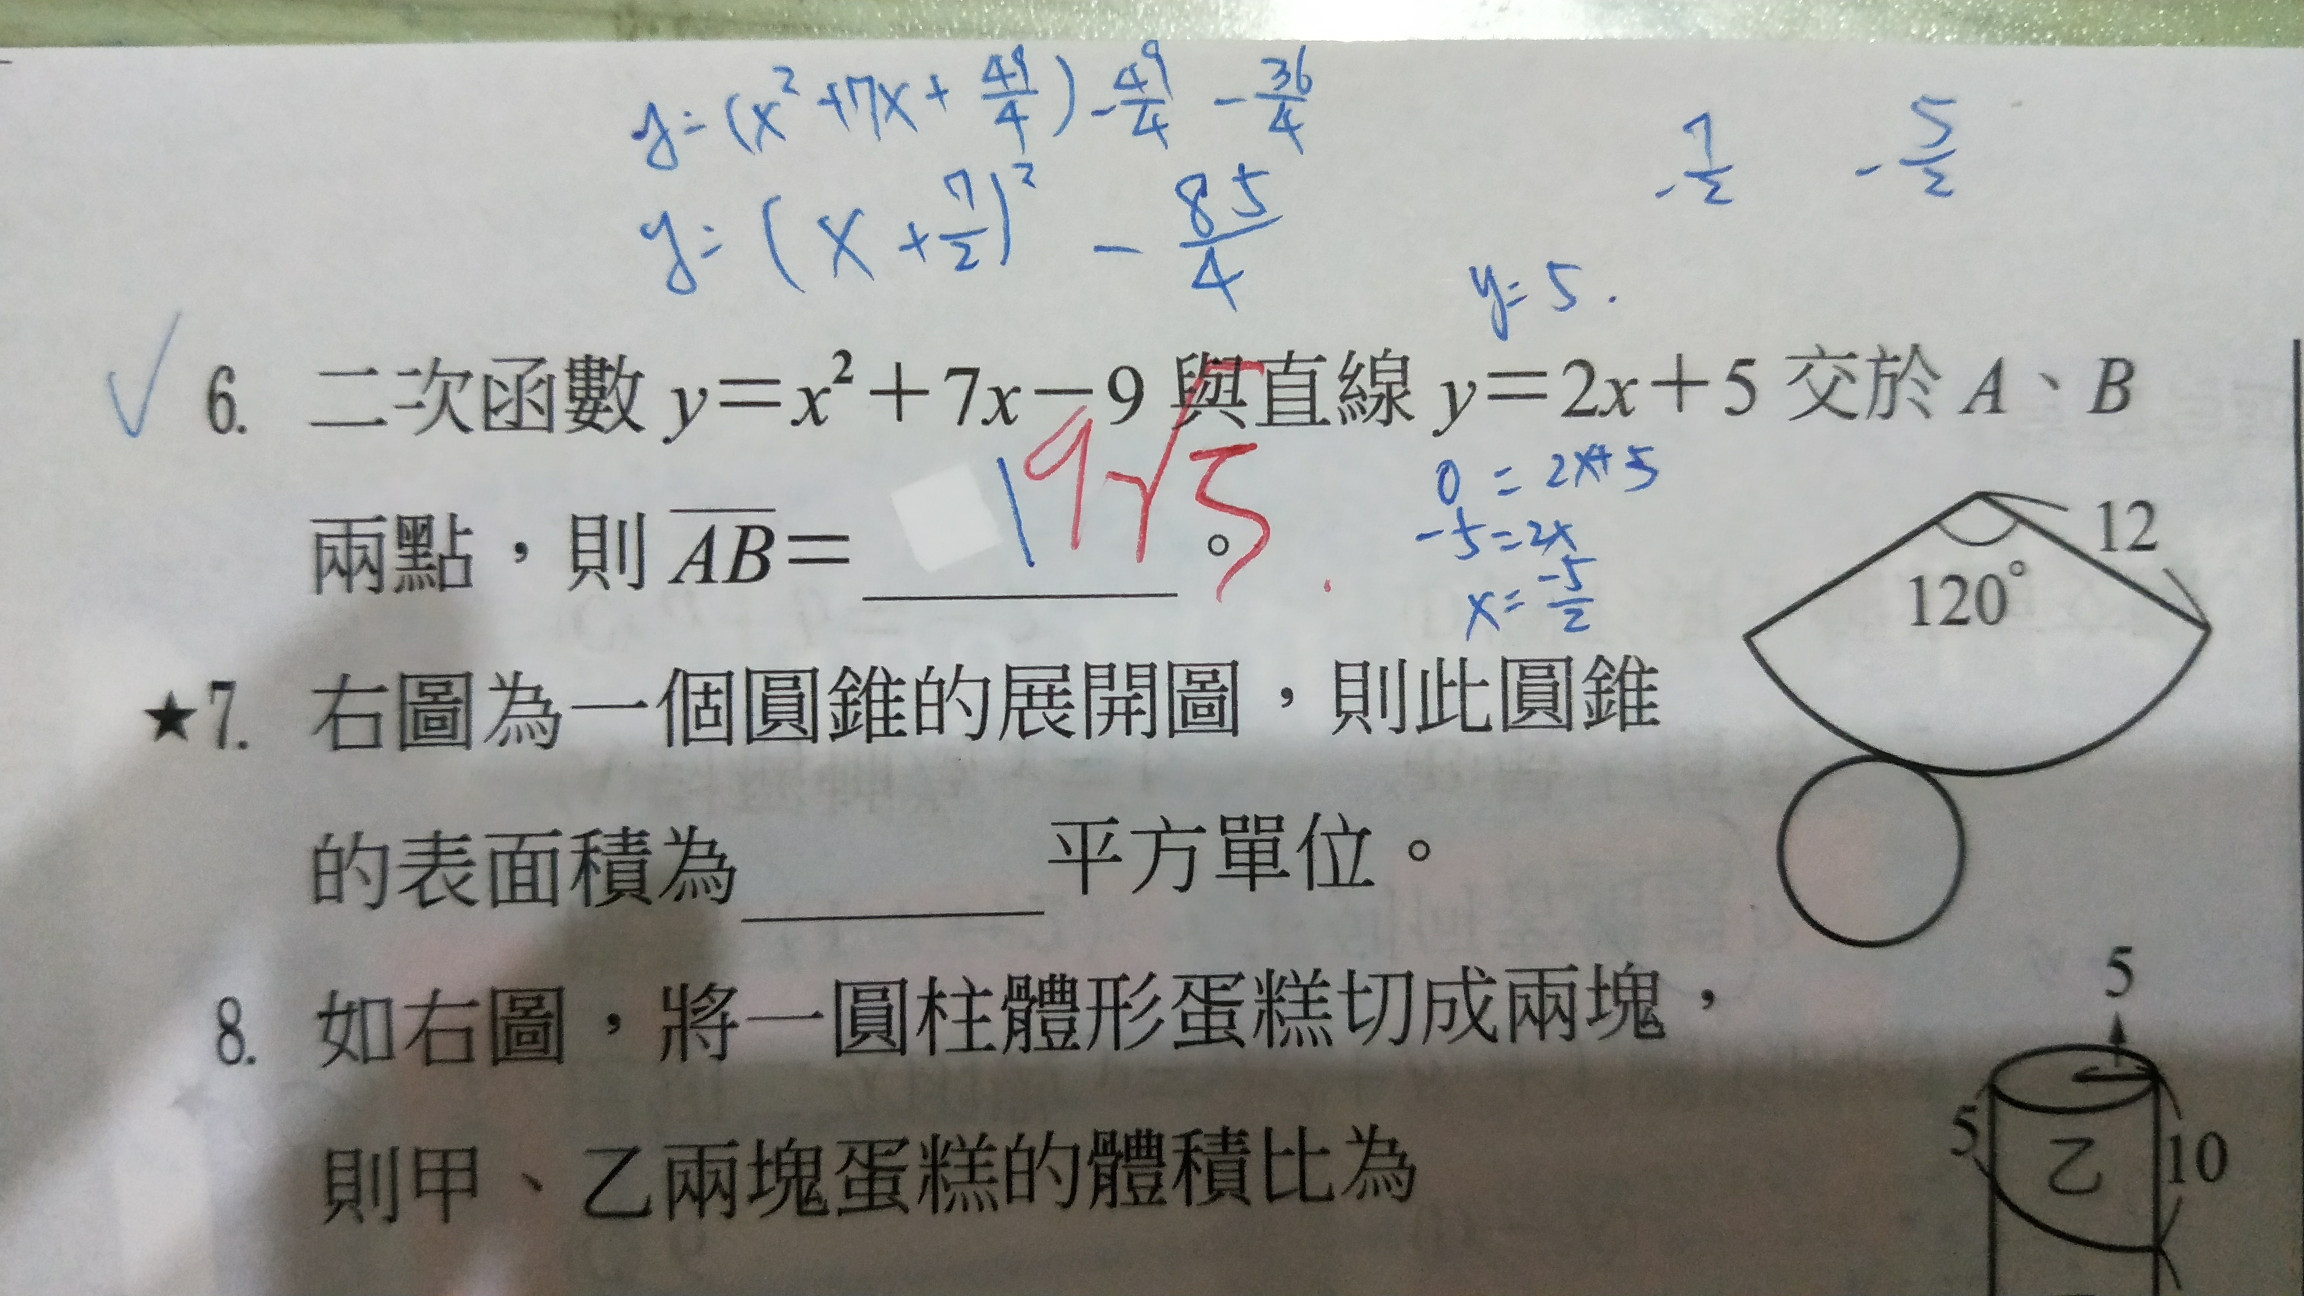 y=(x²+7x+49/4)-49/4-36/4
-7/2 -5/2
y=(x+7/2)²-85/4
y=5.
6. 二次函數 y=x²+7x-9 與直線 y=2x+5 交於 A、B
0=2x+5
兩點，則 AB= 9√5 。
-5=2x
x=-5/2
12
120°
★7. 右圖為一個圓錐的展開圖，則此圓錐
的表面積為 平方單位。
8. 如右圖，將一圓柱體形蛋糕切成兩塊，
則甲、乙兩塊蛋糕的體積比為
5
5
乙
10